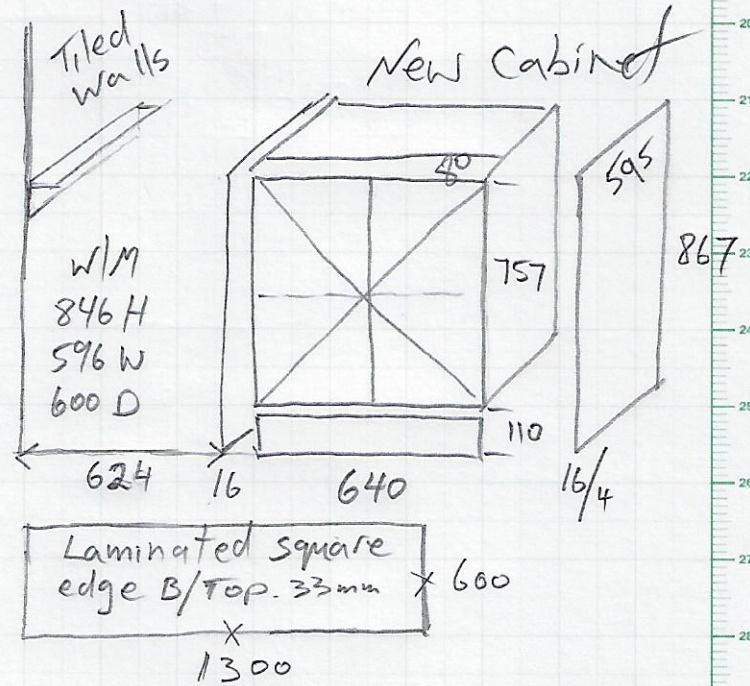 Tiled
Walls
New Cabinet
80
595
W/M
846 H
596 W
600 D
757
867
110
624
16
640
16/4
Laminated square
edge B/Top. 33mm
600
1300
20
21
22
23
24
25
26
27
28